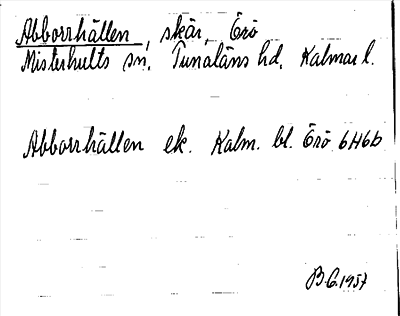 Abborrhällen, skär, Örö
Misterhults sn. Tunaläns hd. Kalmar l.
Abborrhällen ek. Kalm. bl. Örö 6H6b
B.G. 1957